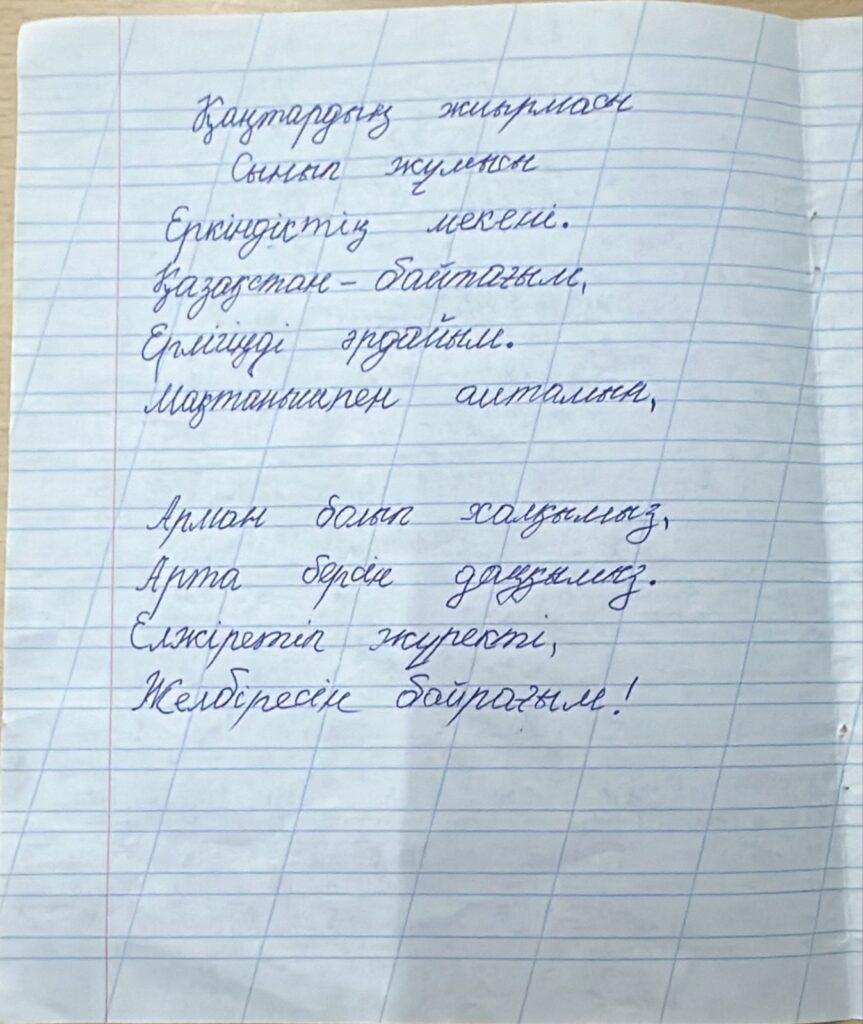 Қаңтардың жиырмасы
Сынып жұмысы
Еркіндіктің мекені.
Қазақстан – байтағым,
Ерлігіңді әрдайым.
Мақтанышпен айтамын,
Арман болып халқымыз,
Арта берсін даңқымыз.
Елжіретіп жүректі,
Желбіресін байрағым!